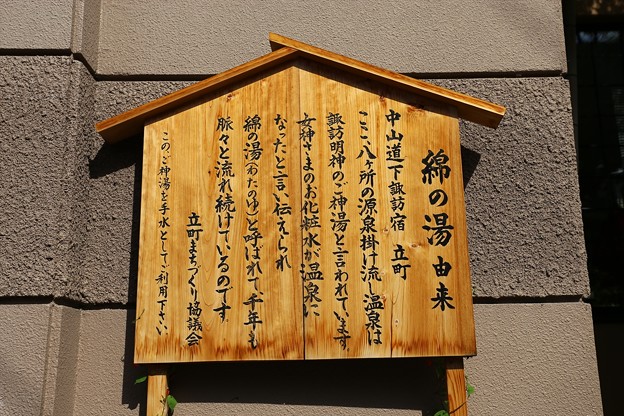 綿の湯 由来
中山道下諏訪宿 立町
ここ八ヶ所の源泉掛け流し温泉は
諏訪明神のご神湯と言われています。
女神さまのお化粧水が温泉に
なったと言い伝えられ
綿の湯(わたのゆ)と呼ばれて、千年も
脈々と流れ続けているのです。
立町まちづくり協議会
このご神湯を手水としてご利用下さい。